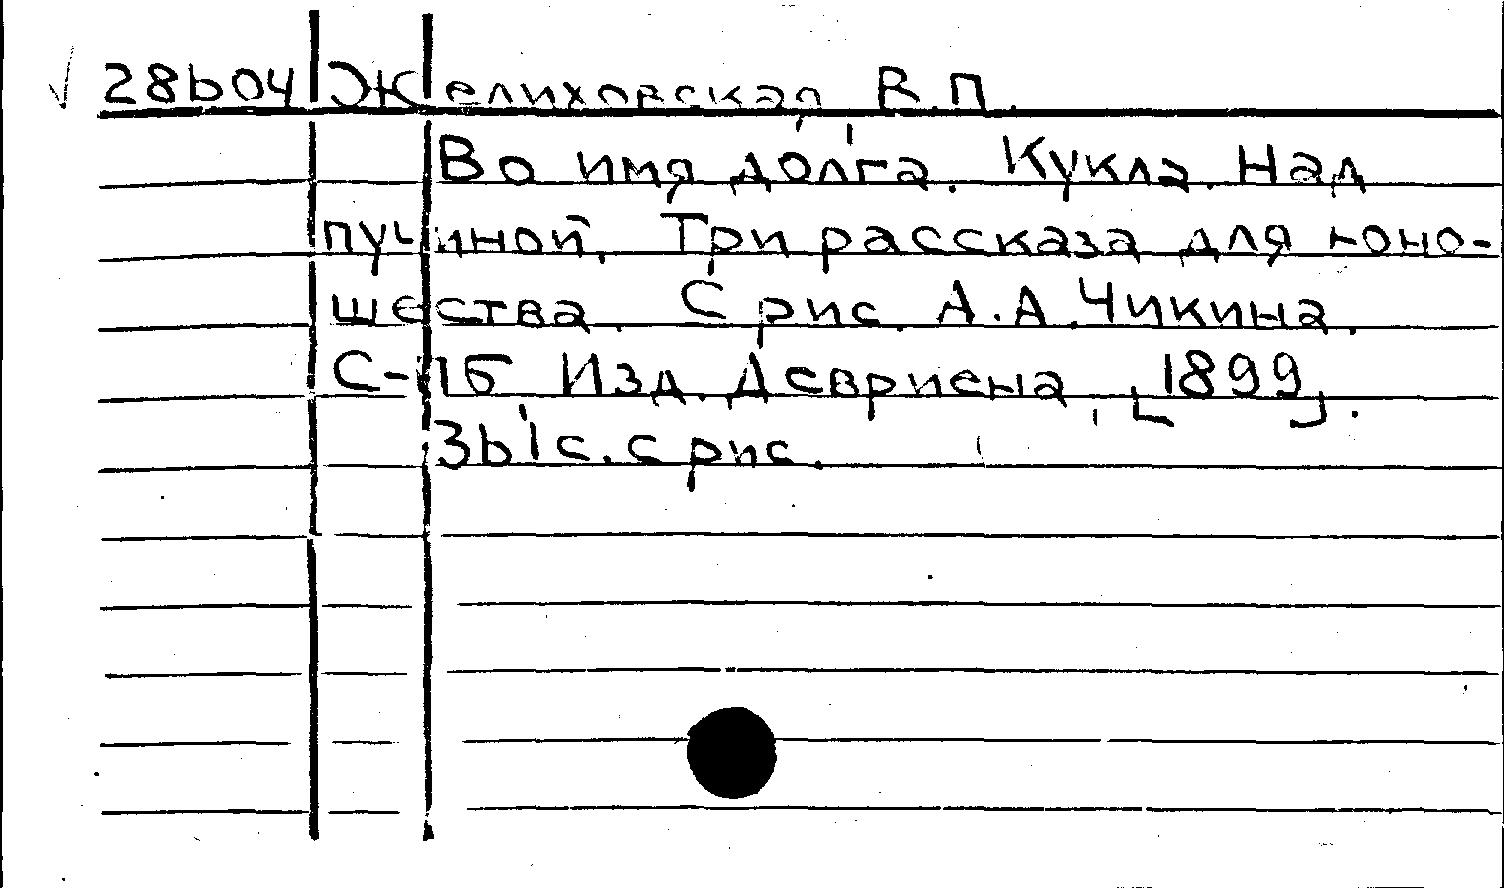 28604 Желиховская В.П.
Во имя долга. Кукла. Над
пучиной. Три рассказа для юно-
шества. С рис. А.А.Чикина.
С-Пб, Изд. Девриена, [1899].
361с. с рис.